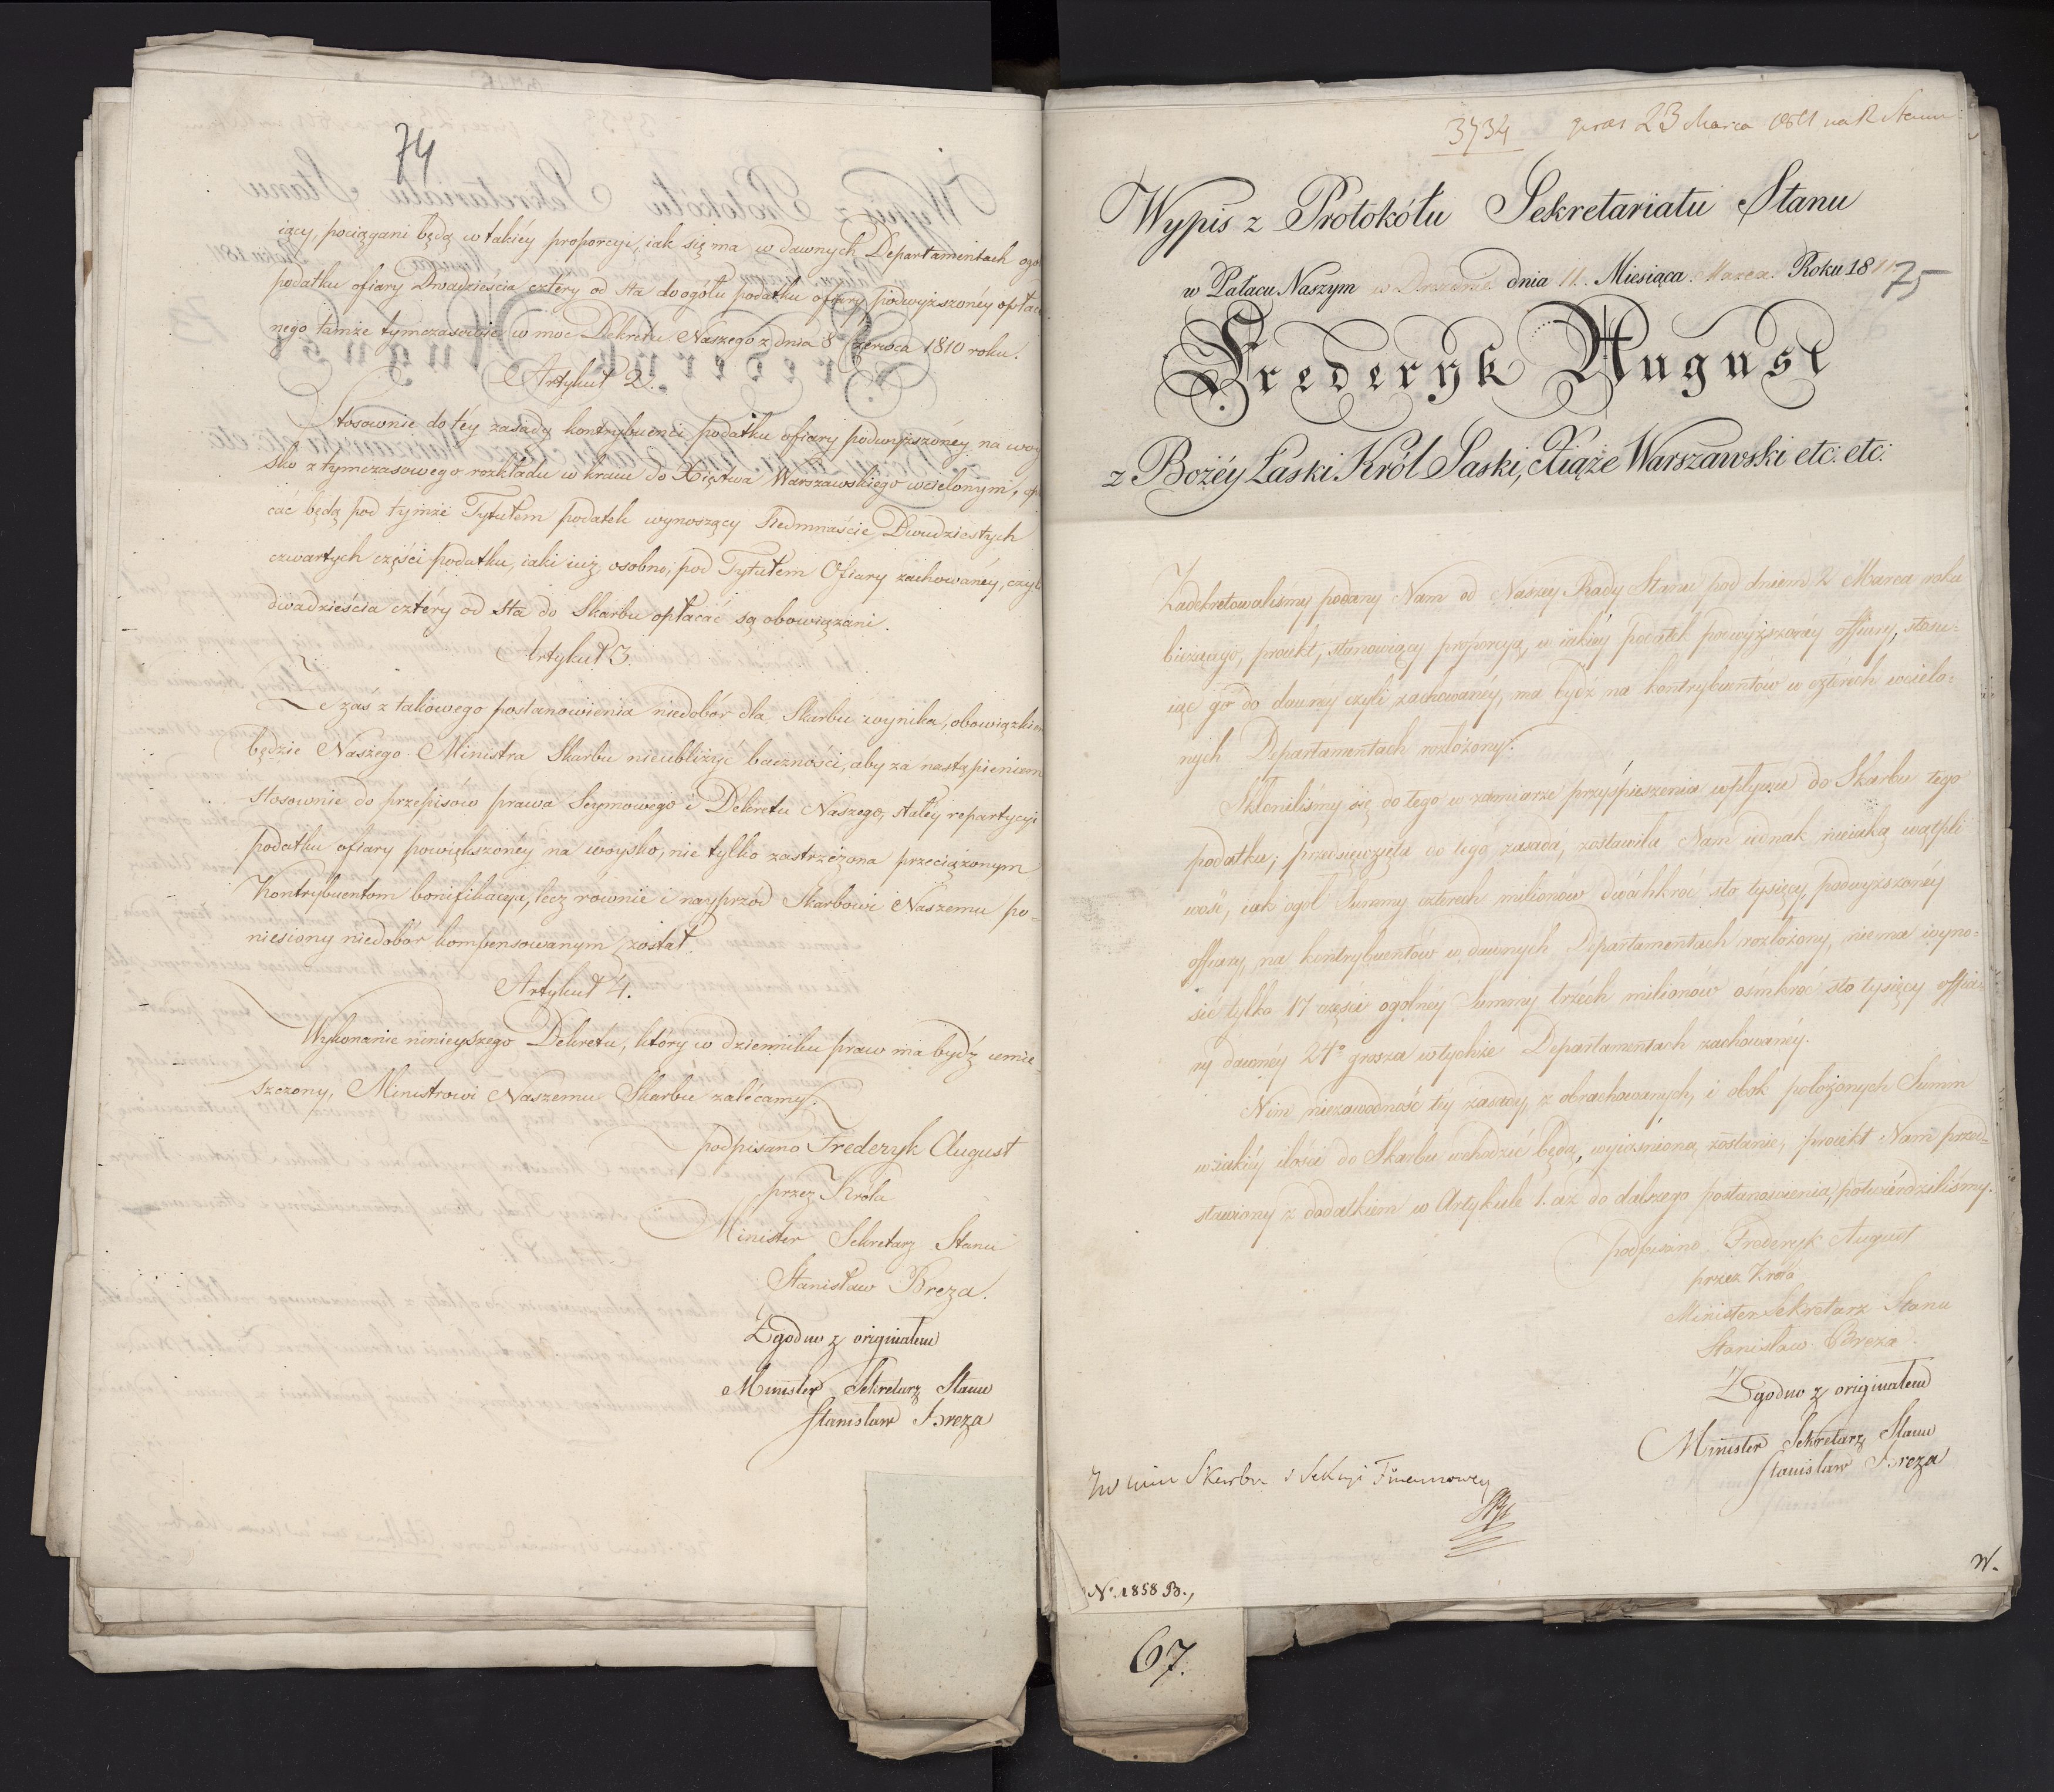 74
iący, pociągani będą w takiey proporcyi, iak się ma w dawnych Departamentach ogo
podatku ofiary Dwadzieścia cztery od sta do ogółu podatku ofiary podwyższonéy opłaco
nego tamże tymczasowie w moc Dekretu Naszego z dnia 8 Czerwca 1810 roku.
Artykuł 2.
Stosownie do téy zasady kontrybuenci podatku ofiary podwyższoney na woy
sko z tymczasowego rozkładu w kraiu do Xięstwa Warszawskiego wcielonym, opła
cać będą pod tymże Tytułem podatek wynoszący Siedmnaście Dwudziestych
czwartych części podatku, iaki iuż osobno, pod Tytułem Ofiary zachowanéy, czyli
dwadzieścia cztéry od sta do Skarbu opłacać są obowiązani.
Artykuł 3.
Że zaś z takowego postanowienia niedobór dla Skarbu wynika, obowiązkiem
będzie Naszego Ministra Skarbu nieubliżyć baczności, aby za nastąpieniem
stosownie do przepisów prawa Seymowego i Dekretu Naszego, stałéy repartycyi
podatku ofiary powiększonéy na woysko, nie tylko zastrzeżona przeciążonym
Kontrybuentom bonifikacya, lecz rownie i nayprzód Skarbowi Naszemu po-
niesiony niedobór kompensowanym został.
Artykuł 4.
Wykonanie ninieyszego Dekretu, który w dzienniku praw ma bydź umie-
szczony, Ministrowi Naszemu Skarbu zalécamy.
podpisano Frederyk August
przez Króla
Minister Sekretarz Stanu
Stanisław Breza.
Zgodno z originałem
Minister Sekretarz Stanu
Stanisław Breza
3734 prae 23 Marca 1811 na R Stanu
Wypis z Protokółu Sekretariatu Stanu
w Pałacu Naszym w Dreznie dnia 11. Miesiąca Marca Roku 1811.
75
Frederyk August
z Bożéy Łaski Król Saski, Xiąże Warszawski etc. etc:
Zadekretowaliśmy podany Nam od Naszey Rady Stanu pod dniem 2 Marca roku
bieżącego, proiekt, stanowiący proporcyą, w iakiéy podatek podwyższonéy offiary, stosu-
iąc go do dawnéy czyli zachowanéy, ma bydź na kontrybuentów w czterech wcielo-
nych Departamentach rozłożony.
Skłoniliśmy się do tego w zamiarze przyśpieszenia wpływu do Skarbu tego
podatku; przedsięwzięta do tego zasada, zostawiła Nam iednak nieiaką wątpli
wość, iak ogół Summy czterech milionów dwóchkroć sto tysięcy, podwyższonéy
offiary, na kontrybuentów w dawnych Departamentach rozłożony, nie ma wyno-
sić tylko 17 części ogólnéy Summy trzech milionów ośmkroć sto tysięcy offia-
ry dawnéy 24º grosza w tychże Departamentach zachowanéy.
Nim niezawodność téy zasady, z obrachowanych, i obok położonych Summ
w iakiéy ilości do Skarbu wchodzić będą, wyiaśnioną zostanie, proiekt Nam przed-
stawiony z dodatkiem w Artykule 1. aż do dalszego postanowienia, potwierdziliśmy.
podpisano Frederyk August
przez Króla
Minister Sekretarz Stanu
Stanisław Breza.
Zgodno z originałem
Minister Sekretarz Stanu
Stanisław Breza
Skarbu i Sekcyi Finansowey
N. 1858 B.,
W.
67.